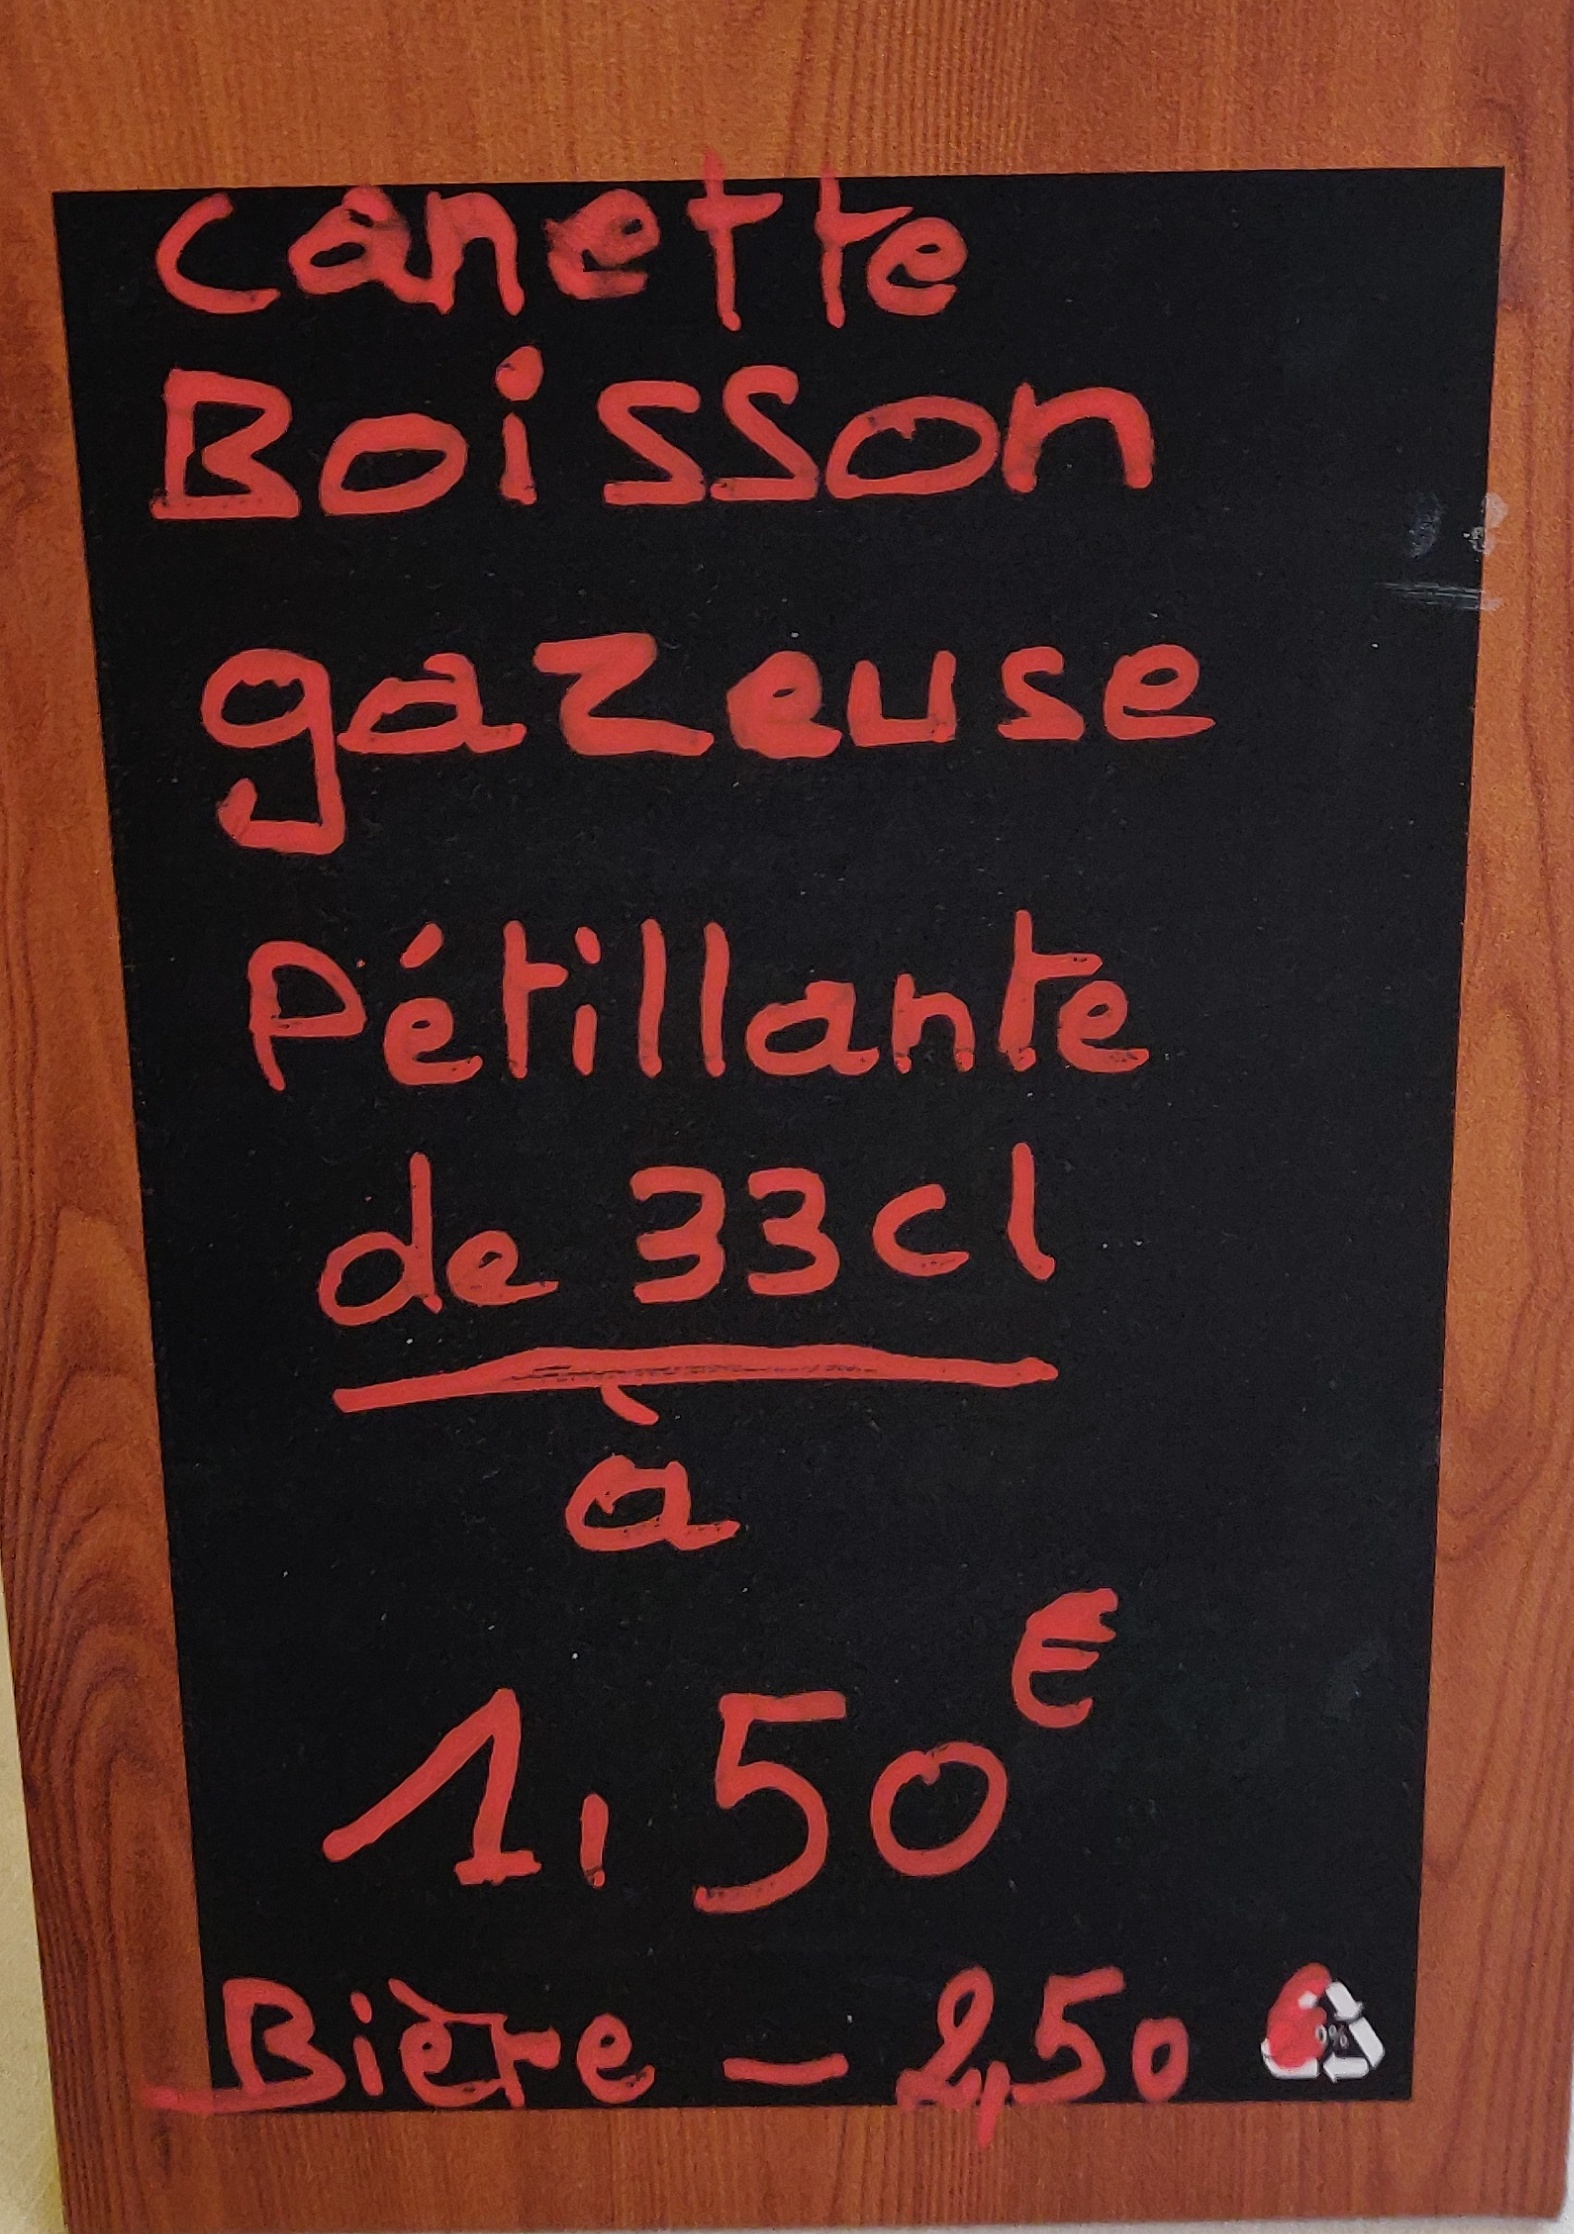 canette
Boisson
gazeuse
Pétillante
de 33cl
à
1,50€
Bière - 2,50 €